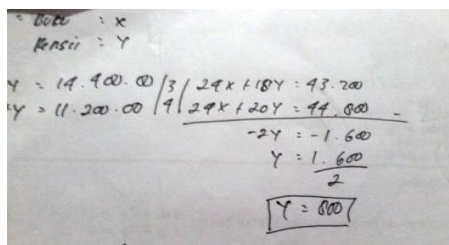 = Buku : x
Pensil : Y
Y = 14.400.00 /3/ 24x + 18Y = 43.200
Y = 11.200.00 /4/ 24x + 20Y = 44.800 -
-2Y = -1.600
Y = 1.600
2
Y = 800